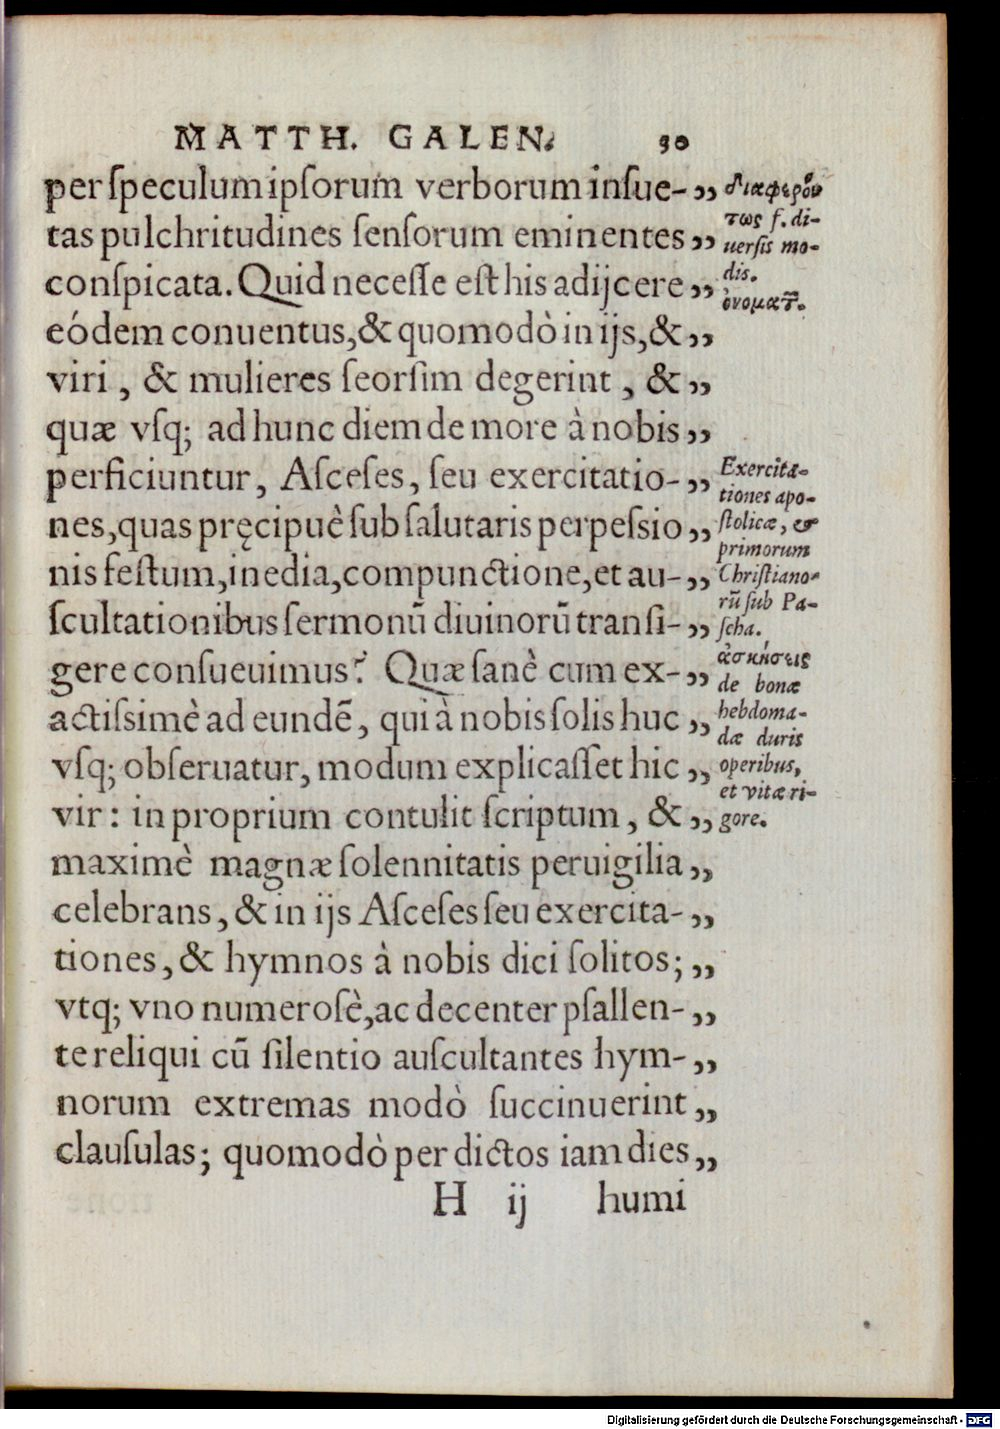 MATTH. GALEN. 30
per ſpeculum ipſorum verborum inſue- ,,
tas pulchritudines ſenſorum eminentes ,,
conſpicata. Quid neceſſe eſt his adijcere ,,
eódem conuentus, & quomodò in ijs, & ,,
viri, & mulieres ſeorſim degerint, & ,,
quæ vſq; ad hunc diem de more à nobis ,,
perficiuntur, Aſceſes, ſeu exercitatio- ,,
nes, quas pręcipuè ſub ſalutaris perpeſsio ,,
nis feſtum, inedia, compunctione, et au- ,,
ſcultationibus ſermonũ diuinorũ tranſi- ,,
gere conſueuimus? Quæ ſanè cum ex- ,,
actiſsimè ad eundẽ, qui à nobis ſolis huc ,,
vſq; obſeruatur, modum explicaſſet hic ,,
vir: in proprium contulit ſcriptum, & ,,
maximè magnæ ſolennitatis peruigilia ,,
celebrans, & in ijs Aſceſes ſeu exercita- ,,
tiones, & hymnos à nobis dici ſolitos; ,,
vtq; vno numeroſè, ac decenter pſallen- ,,
te reliqui cũ ſilentio auſcultantes hym- ,,
norum extremas modò ſuccinuerint ,,
clauſulas; quomodò per dictos iam dies ,,
H ij humi
διαφερόν
τως ſ. di-
uerſis mo-
dis.
Exercita-
tiones apo-
ſtolicæ, &
primorum
Chriſtiano-
rũ ſub Pa-
ſcha.
ἀσκήσεις
de bonæ
hebdoma-
dæ duris
operibus,
et vitæ ri-
gore.
Digitalisierung gefördert durch die Deutsche Forschungsgemeinschaft - DFG